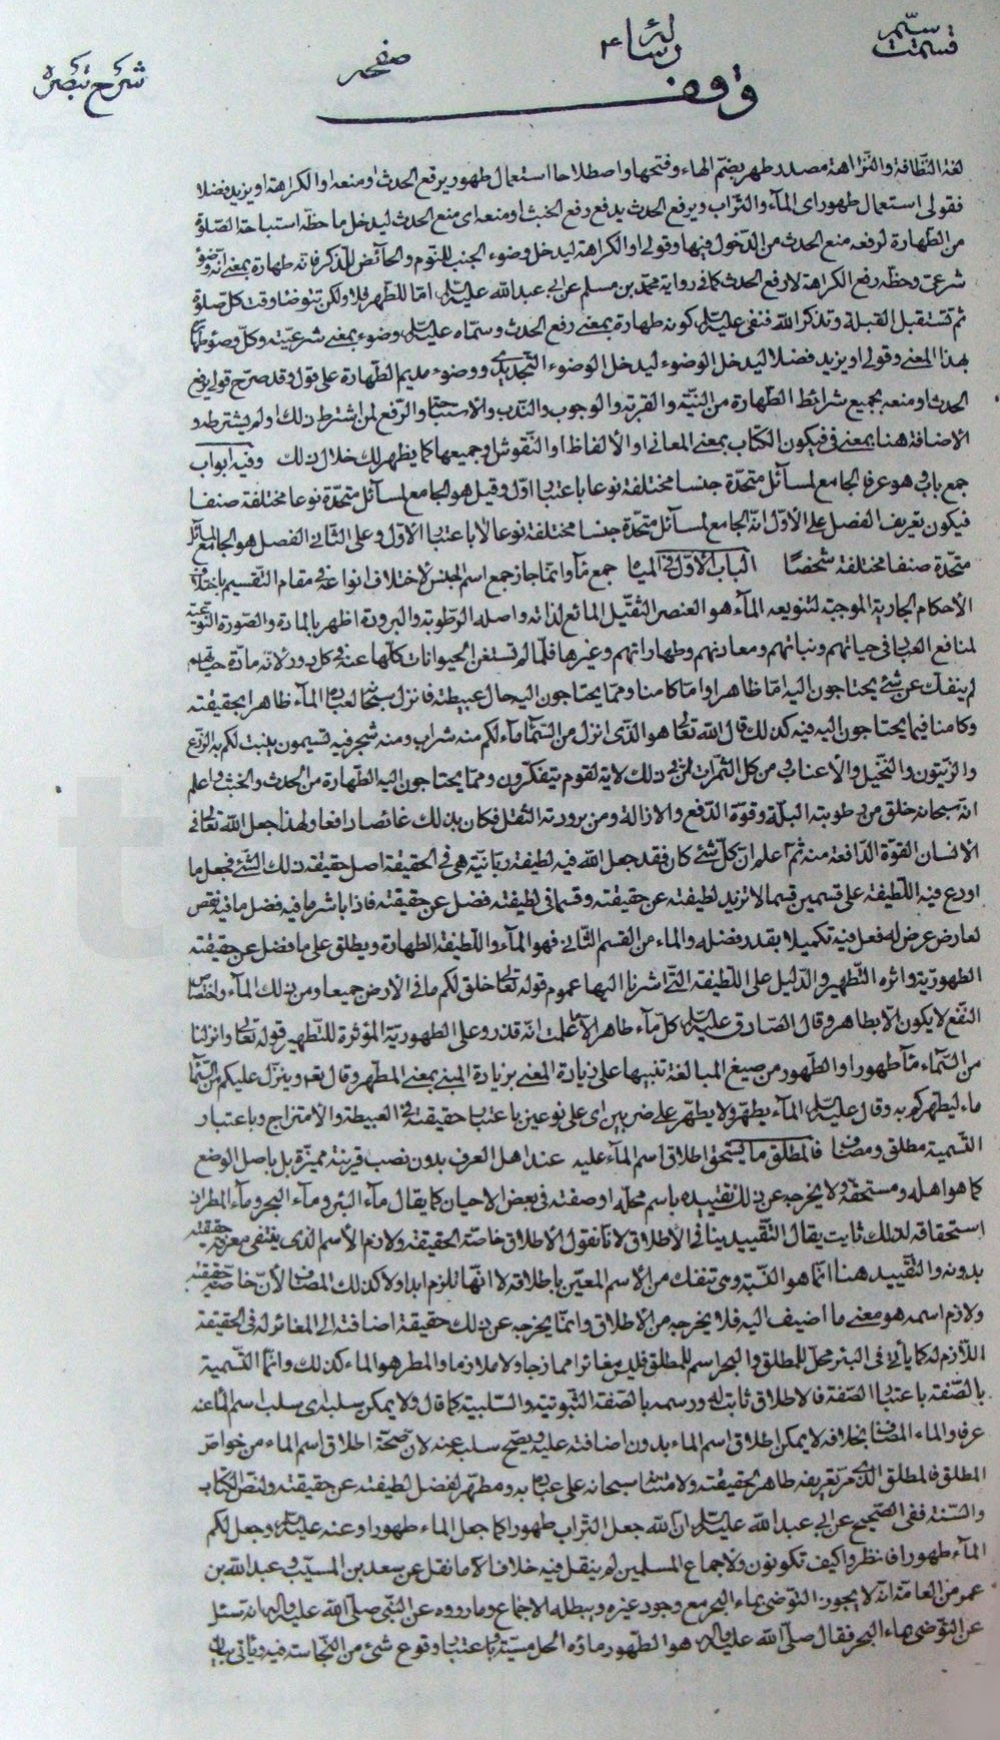 قسمت سیّم
رسالهٔ ۴
صفحه
شرح تبصره
وقف
لغة النّظافة والنّزاهة مصدر طهر بضمّ الهاء وفتحها واصطلاحا استعمال طهور يرفع الحدث او منعه او الكراهة او يزيد فضلا
فقولى استعمال طهور اى المآء والتّراب ويرفع الحدث يدفع رفع الخبث او منعه اى منع الحدث ليدخل ما حظّه استباحة الصّلوة
من الطّهارة لرفعه منع الحدث من الدّخول فيها وقولى او الكراهة ليدخل وضوء الجنب للنّوم والحآئض للذّكر فانّه طهارة بمعنى انّه وضوء
شرعىّ وحظّه رفع الكراهة لا رفع الحدث كما فى رواية محمّد بن مسلم عن ابى عبد الله عليه السّلم امّا للطّهر فلا ولكن تتوضّا وقت كلّ صلوة
ثم تستقبل القبلة وتذكر اللّه فنفى عليه السّلم كونه طهارة بمعنى رفع الحدث وسمّاه عليه السّلم وضوء بمعنى شرعيّته وكلّ وضوء طهارة
بهذا المعنى وقولى او يزيد فضلا ليدخل الوضوء ليدخل الوضوء التّجديدى ووضوء مديم الطّهارة على قول وقد صرّح قولى يرفع
الحدث او منعه بجميع شرائط الطّهارة من النّيّة والقربة والوجوب والنّدب والاستباحة والرّفع لمن اشترط ذلك او لم يشترطه و
الاضافة هنا بمعنى فى فيكون الكتاب بمعنى المعانى او الالفاظ او النّقوش او جميعها كما يظهر لك خلال ذلك وفيه ابواب
جمع باب هو عرفا الجامع لمسآئل متّحدة جنسا مختلفة نوعا باعتبار اوّل وقيل هو الجامع لمسآئل متّحدة نوعا مختلفة صنفا
فيكون تعريف الفصل على الاوّل انّه الجامع لمسآئل متّحدة جنسا مختلفة نوعا لا باعتبار الاوّل وعلى الثّانى الفصل هو الجامع لمسآئل
متّحدة صنفا مختلفة شخصًا الباب الاوّل فى المياه جمع مآء وانّما جاز جمع اسم الجنس لاختلاف انواعه فى مقام التّقسيم باختلاف
الاحكام الجارية الموجبة لتنويعه المآء هو العنصر الثّقيل المائع لذاته واصله الرّطوبة والبرودة اظهر بالمادة والصّورة النّوعيّة
لمنافع العباد فى حياتهم ونباتهم ومعادنهم وطهاراتهم وغيرها فلمّا لم تستغن الحيوانات كلّها عنه فى كلّ دور لانّه مادّة حياتهم
لم ينفكّ عن شئ يحتاجون اليه امّا ظاهرا وامّا كامنا وممّا يحتاجون اليه حال عبيطته فانزل سبحانه لعباده المآء ظاهرا بحقيقته
وكامنا فيما يحتاجون اليه فيه كذلك قال اللّه تعالى هو الّذى انزل من السّمآء مآء لكم منه شراب ومنه شجر فيه تسيمون ينبت لكم به الزّرع
والزّيتون والنّخيل والاعناب ومن كلّ الثّمرات انّ فى ذلك لآية لقوم يتفكّرون وممّا يحتاجون اليه الطّهارة من الحدث والخبث واعلم
انّه سبحانه خلق من رطوبته البلّة وقوّة الدّفع والازالة ومن برودته الثّقل فكان بذلك غائصا دافعا ولهذا جعل اللّه تعالى فى
الانسان القوّة الدّافعة منه ثمّ اعلم ان كلّ شئ كان فقد جعل اللّه فيه لطيفة ربّانيّة هى فى الحقيقة اصل حقيقة ذلك الشّئ فجعل ما
اودع فيه اللّطيفة على قسمين قسما لا تزيد لطيفته عن حقيقته وقسما فى لطيفته فضل عن حقيقته فاذا باشر ما فيه فضل ما فيه نقص
لعارض عرض له فعل فيه تكميلا بقدر فضله والماء من القسم الثّانى فهو المآء واللّطيفة الطّهارة ويطلق على ما فضل عن حقيقته
الطهوريّة واثره التّطهير والدّليل على اللّطيفة الّتى اشرنا اليها عموم قوله تعالى خلق لكم ما فى الارض جميعا ومن ذلك المآء واختصاص
النّفع لا يكون الّا بطاهر وقال الصّادق عليه السّلم كلّ مآء طاهر الّا ما علمت انّه قذر وعلى الطهوريّة المؤثرة للتّطهير قوله تعالى وانزلنا
من السّماء مآء طهورا والطّهور من صيغ المبالغة تنبيها على زيادة المعنى بزيادة المبنى بمعنى المطهر وقال تعالى وينزل عليكم من السّمآء
ماء ليطهركم به وقال عليه السّلم المآء يطهّر ولا يطهّر على ضربين اى على نوعين باعتبار حقيقته فى العبيطة والامتزاج وباعتبار
التّسمية مطلق ومضاف فالمطلق ما يستحق اطلاق اسم المآء عليه عند اهل العرف بدون نصب قرينة مميّزة بل باصل الوضع
كما هو اهله ومستحقّه ولا يخرجه عن ذلك تقييده باسم محلّه او صفته فى بعض الاحيان كما يقال مآء البئر ومآء البحر ومآء المطر لان
استحقاقه لذلك ثابت يقال التّقييد ينافى الاطلاق لانّا نقول الاطلاق خاصّة الحقيقة ولازم الاسم الذى ينتفى معرفة حقيقته
بدونه والتّقييد هنا انّما هو النّسبة وهى تنفك من الاسم المعيّن باطلاقه لا انّها تلزم ابدا ولا كذلك المضاف لأنّ خاصّة حقيقته
ولازم اسمه هو معنى ما اضيف اليه فلا يخرجه من الاطلاق وانّما يخرجه عن ذلك حقيقة اضافته الى المغائر له فى الحقيقة
اللّازم له كما يأتى فى البئر محلّ للمطلق والبحر اسم للمطلق فليس مغائرا ممازجا ولا ملازما والمطر هو الماء كذلك وانّما التّسمية
بالصّفة باعتبار الصّفة فالاطلاق ثابت له ورسمه بالصّفة الثّبوتيّة والسّلبيّة كما قال ولا يمكن سلبه اى سلب اسم الماء عنه
عرفا والماء المضاف بخلافه لا يمكن اطلاق اسم الماء بدون اضافته عليه ويصحّ سلبه عنه لان صحّة اطلاق اسم الماء من خواصّ
المطلق فالمطلق الّذى مرّ تعريفه طاهر لحقيقته ولامتنانه سبحانه على عباده به ومطهّر لفضل لطيفته عن حقيقته ولنصّ الكتاب
والسّنّة ففى الصّحيح عن ابى عبد اللّه عليه السّلم انّ اللّه جعل التّراب طهورا كما جعل الماء طهورا وعنه عليه السّلم وجعل لكم
المآء طهورا فانظروا كيف تكونون ولاجماع المسلمين لم ينقل فيه خلاف الّا ما نقل عن سعد بن المسيّب وعبد اللّه بن
عمر من العامّة انّه لا يجوز التّوضى بماء البحر مع وجود غيره ويبطله الاجماع وما رووه عن النّبى صلّى اللّه عليه وآله انه سئل
عن التّوضى بماء البحر فقال صلّى اللّه عليه وآله هو الطّهور ماؤه الحل ميتته باعتبار وقوع شئ من النّجاسة فيه ويأتى بيان